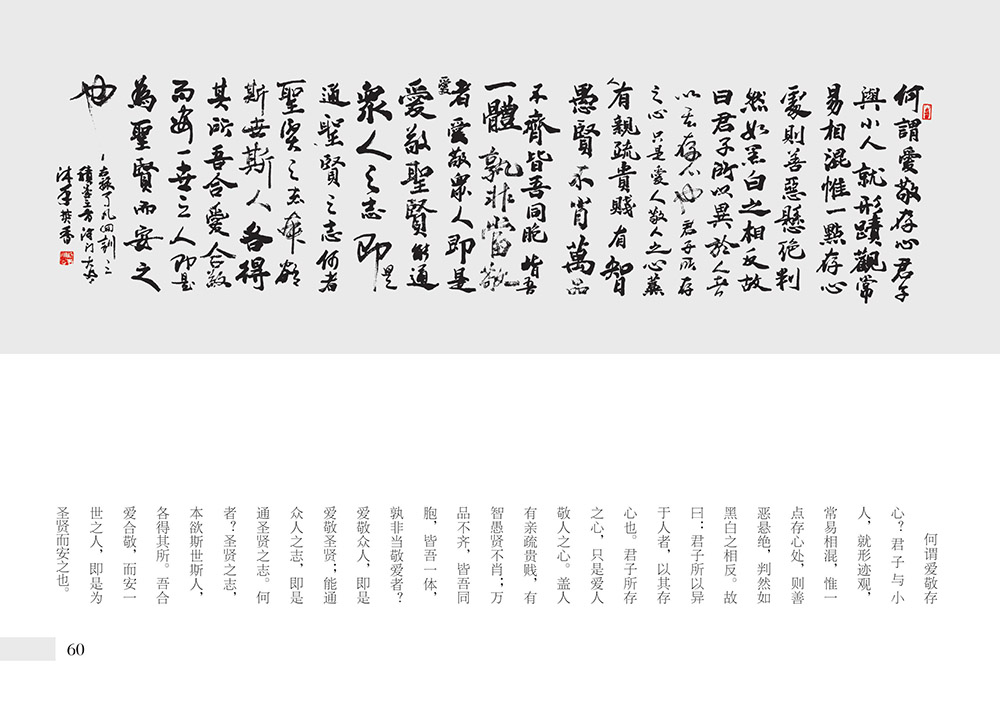 何謂愛敬存心君子
與小人就形蹟觀常
易相混惟一點存心
處則善惡懸絶判
然如黑白之相反故
曰君子所以異於人者
以其存心也君子所存
之心只是愛人敬人之心蓋
人有親疏貴賤有智
愚賢不肖萬品
不齊皆吾同胞皆吾
一體孰非當敬
愛者愛敬衆人即是
愛敬聖賢能通
衆人之志即是
通聖賢之志何者
聖賢之志本欲
斯世斯人各得
其所吾合愛合敬
而安一世之人即是
為聖賢而安之
也
了凡四訓之
積善之方
何谓爱敬存
心？君子与小
人，就形迹观，
常易相混，惟一
点存心处，则善
恶悬绝，判然如
黑白之相反。故
曰：君子所以异
于人者，以其存
心也。君子所存
之心，只是爱人
敬人之心。盖人
有亲疏贵贱，有
智愚贤不肖；万
品不齐，皆吾同
胞，皆吾一体，
孰非当敬爱者？
爱敬众人，即是
爱敬圣贤；能通
众人之志，即是
通圣贤之志。何
者？圣贤之志，
本欲斯世斯人，
各得其所。吾合
爱合敬，而安一
世之人，即是为
圣贤而安之也。
60